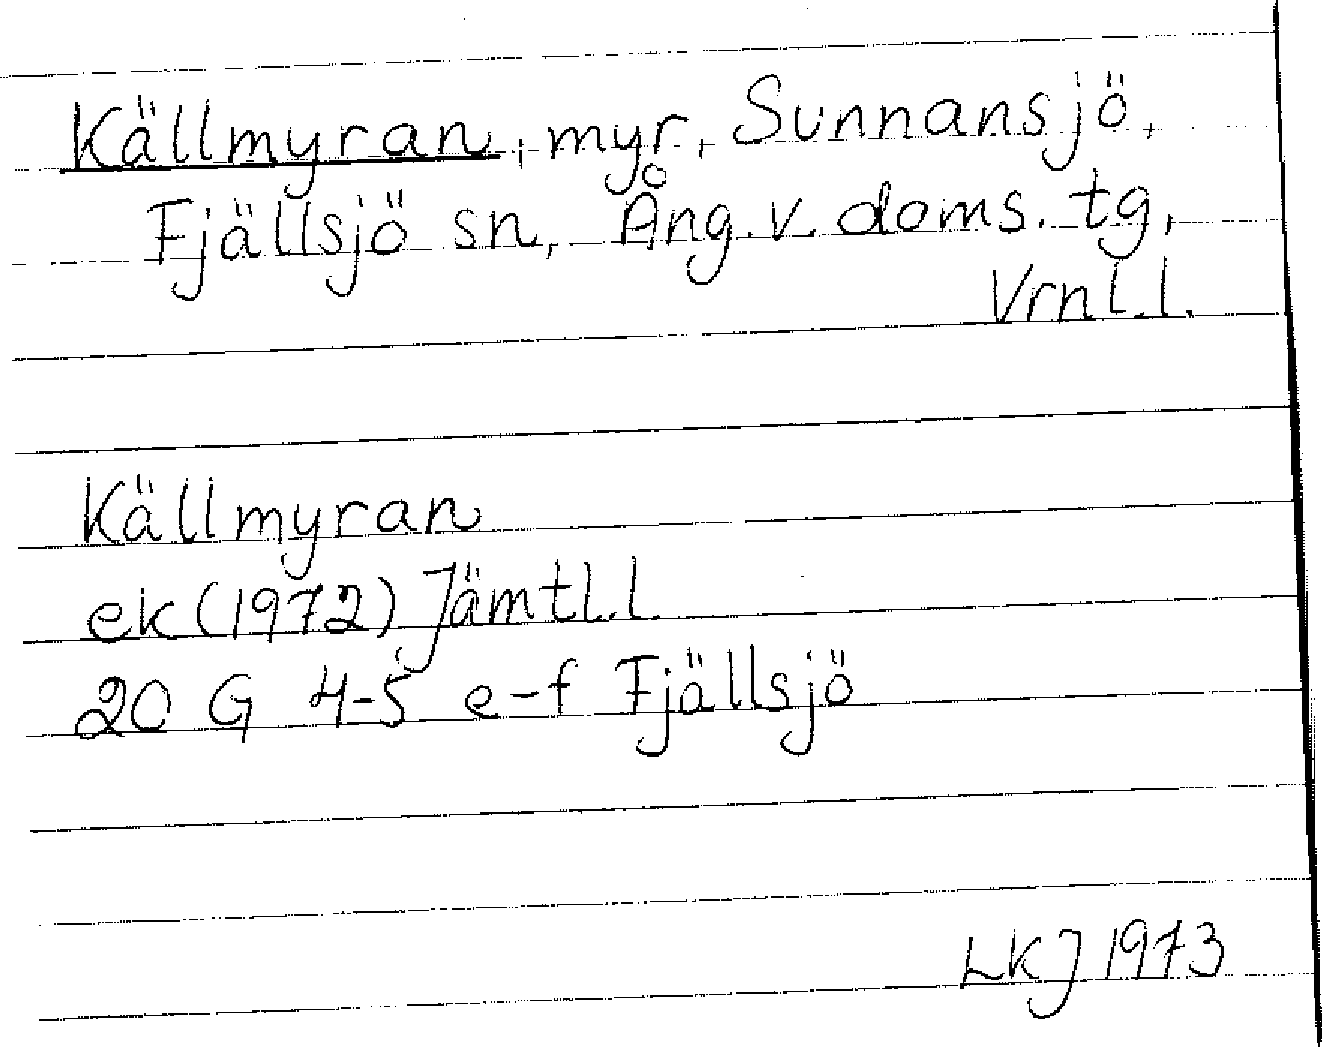 Källmyran, myr, Sunnansjö,
Fjällsjö sn, Ång. v. doms. tg,
Vrnl. l.
Källmyran
ek (1972) Jämtl. l
20 G 4-5 e-f Fjällsjö
LKJ 1973